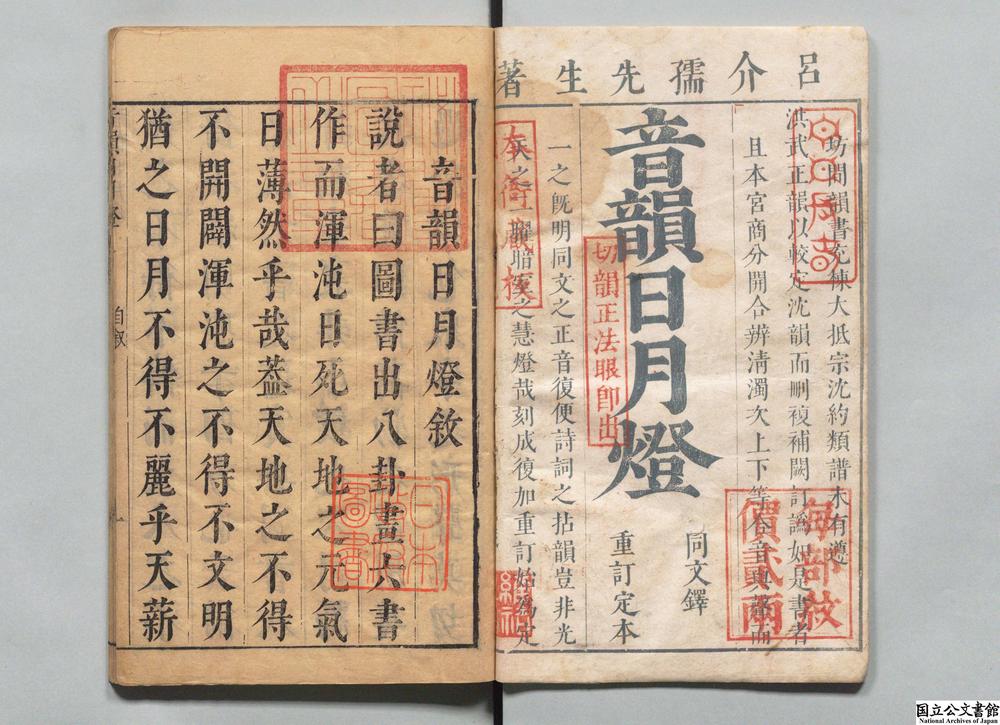 呂介孺先生著
坊間韻書充棟大抵宗沈約類譜未有遵
洪武正韻以較定沈韻而刪複補闕訂譌如是書者
且本宮商分開合辨清濁次上下等令音與聲而
音韻日月燈
同文鐸
重訂定本
一之既明同文之正音復便詩詞之拈韻豈非光
天之一曜暗室之慧燈哉刻成復加重訂始為定
本衙藏板
切韻正法眼即出
每部紋
價貳兩
音韻日月燈敘
說者曰圖書出八卦畫六書
作而渾沌日死天地之元氣
日薄然乎哉蓋天地之不得
不開闢渾沌之不得不文明
猶之日月不得不麗乎天薪
自敘
一
日本
圖書
国立公文書館
National Archives of Japan